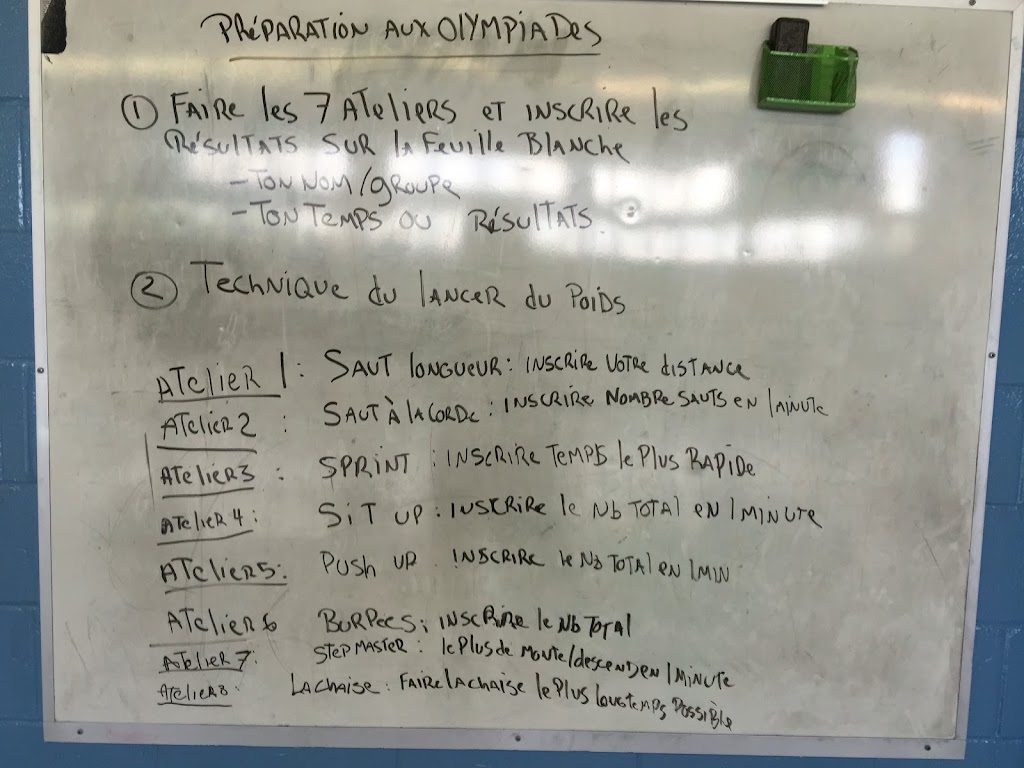 PRÉPARATION AUX OLYMPIADES
① FAIRE les 7 ATELIERS ET INSCRIRE les
RÉSULTATS SUR LA FEUILLE BLANCHE
- TON NOM/GROUPE
- TON TEMPS OU RÉSULTATS
② TECHNIQUE DU LANCER DU POIDS
ATELIER 1 : SAUT LONGUEUR : INSCRIRE VOTRE DISTANCE
ATELIER 2 : SAUT À LA CORDE : INSCRIRE NOMBRE SAUTS EN 1 MINUTE
ATELIER 3 : SPRINT : INSCRIRE TEMPS le PLUS RAPIDE
ATELIER 4 : SIT UP : INSCRIRE le Nb TOTAL EN 1 MINUTE
ATELIER 5 : PUSH UP INSCRIRE le Nb TOTAL EN 1 MIN
ATELIER 6 BURPEES : INSCRIRE le Nb TOTAL
ATELIER 7 : STEP MASTER : le PLUS de MONTE/descend EN 1 MINUTE
ATELIER 8 : LA CHAISE : FAIRE LA CHAISE le PLUS LONGTEMPS POSSIBLE